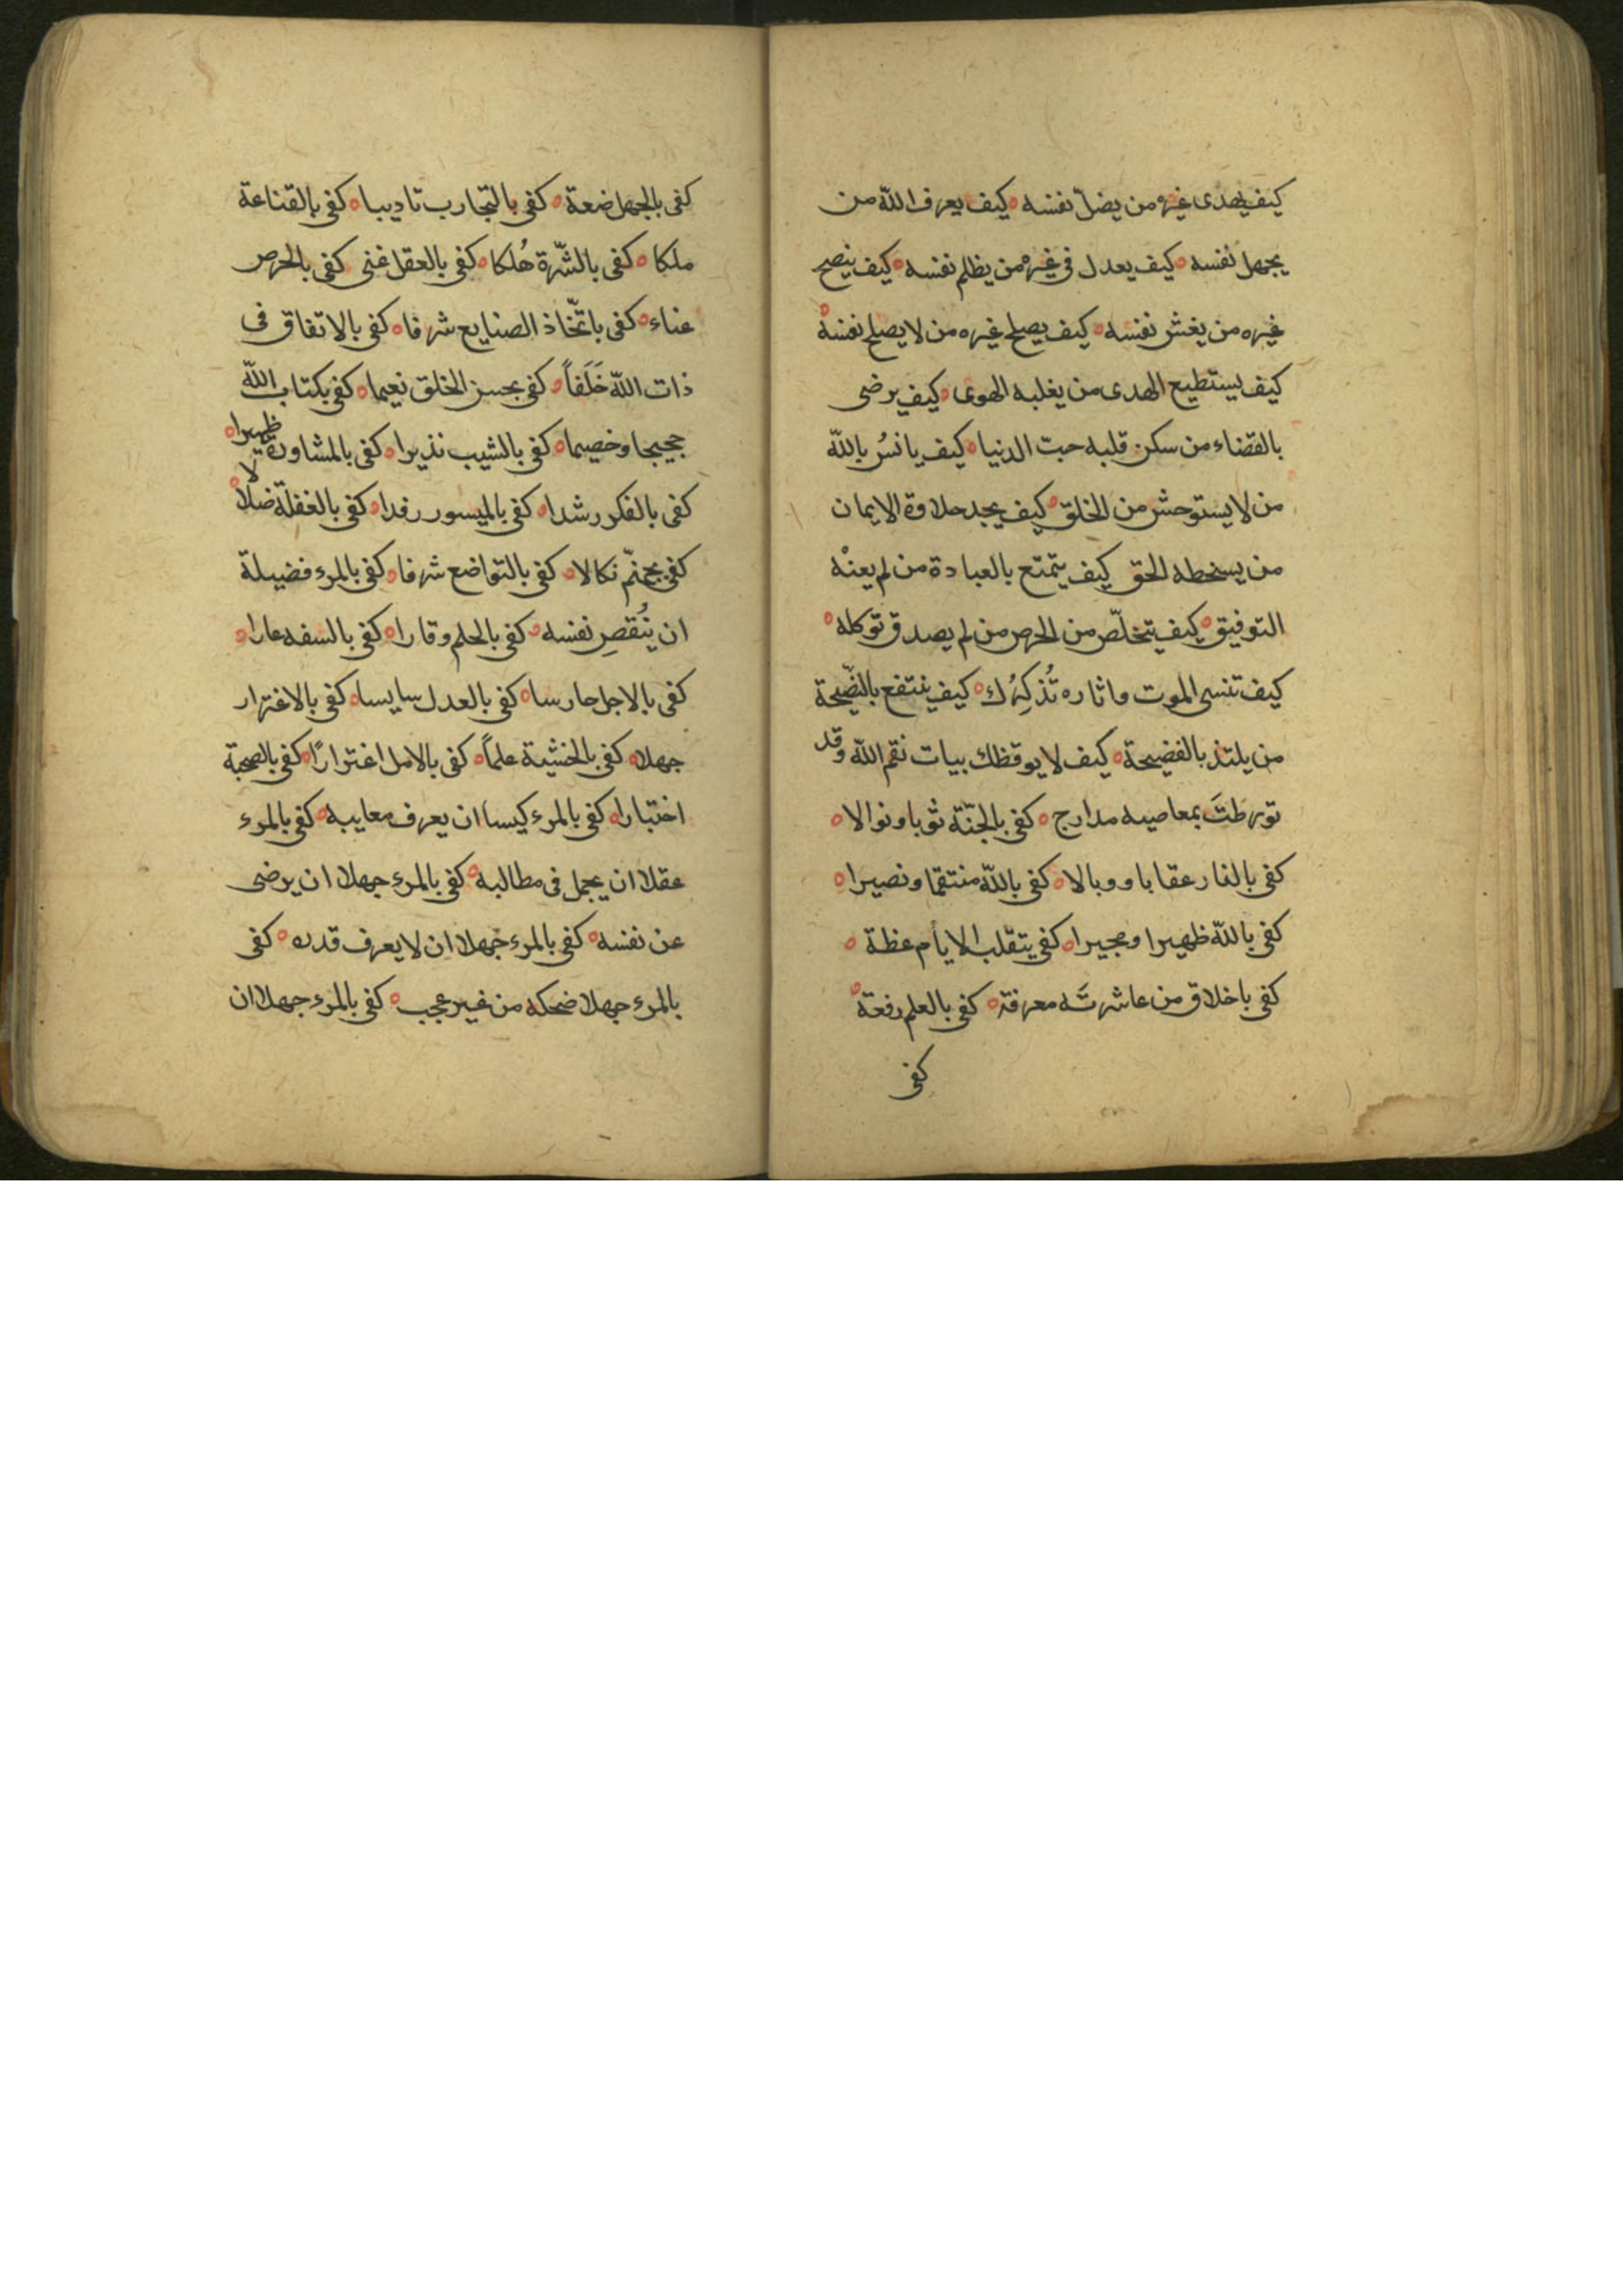 كيف يهدى غيره من يضلّ نفسه ه كيف يعرف الله من
يجهل نفسه ه كيف يعدل فى غيره من يظلم نفسه ه كيف ينصح
غيره من يغش نفسه ه كيف يصلح غيره من لا يصلح نفسه ه
كيف يستطيع الهدى من يغلبه الهوى ه كيف يرضى
بالقضاء من سكن قلبه حبّ الدنيا ه كيف يانسُ بالله
من لا يستوحش من الخلق ه كيف يجد حلاوة الايمان
من يسخطه الحق كيف يتمتع بالعبادة من لم يعنْه
التوفيق ه كيف يتخلّص من الحرص من لم يصدق توكله ه
كيف تنسى الموت واثاره تُذكِرُك ه كيف ينتفع بالنّصيحة
من يلتذ بالفضيحة ه كيف لا يوقظك بيات نقم الله وقد
تورطتَ بمعاصيه مدارج ه كفى بالجنّة ثوبا ونوالا ه
كفى بالنار عقابا ووبالا ه كفى بالله منتقما ونصيرا ه
كفى بالله ظهيرا ومجيرا ه كفى بتقلب الايام عظة ه
كفى باخلاق من عاشرتَه معرفة ه كفى بالعلم رفعة ه
كفى
كفى بالجهل ضعة ه كفى بالتجارب تاديبا ه كفى بالقناعة
ملكا ه كفى بالشّرة هُلكا ه كفى بالعقل غنى كفى بالحرص
عناء ه كفى باتّخاذ الصنايع شرفا ه كفى بالاتفاق فى
ذات الله خَلَفاً ه كفى بحسن الخلق نعيما ه كفى بكتاب الله
حجيجا وخصيما ه كفى بالشيب نذيرا ه كفى بالمشاورة ظهيرا ه
كفى بالفكر رشدا ه كفى بالميسور رفدا ه كفى بالغفلة ضلالا ه
كفى بجهنّم نكالا ه كفى بالتواضع شرفا ه كفى بالمرء فضيلة
ان يُنْقصِ نفسه ه كفى بالحلم وقارا ه كفى بالسفه عارا ه
كفى بالاجل حارسا ه كفى بالعدل سايسا ه كفى بالاغترار
جهلا ه كفى بالخشية علماً ه كفى بالامل اغترارًا ه كفى بالصحبة
اختبارا ه كفى بالمرء كيسا ان يعرف معايبه ه كفى بالمرء
عقلا ان يجمل فى مطالبه ه كفى بالمرء جهلا ان يرضى
عن نفسه ه كفى بالمرء جهلا ان لا يعرف قدره ه كفى
بالمرء جهلا ضحكه من غير عجب ه كفى بالمرء جهلا ان